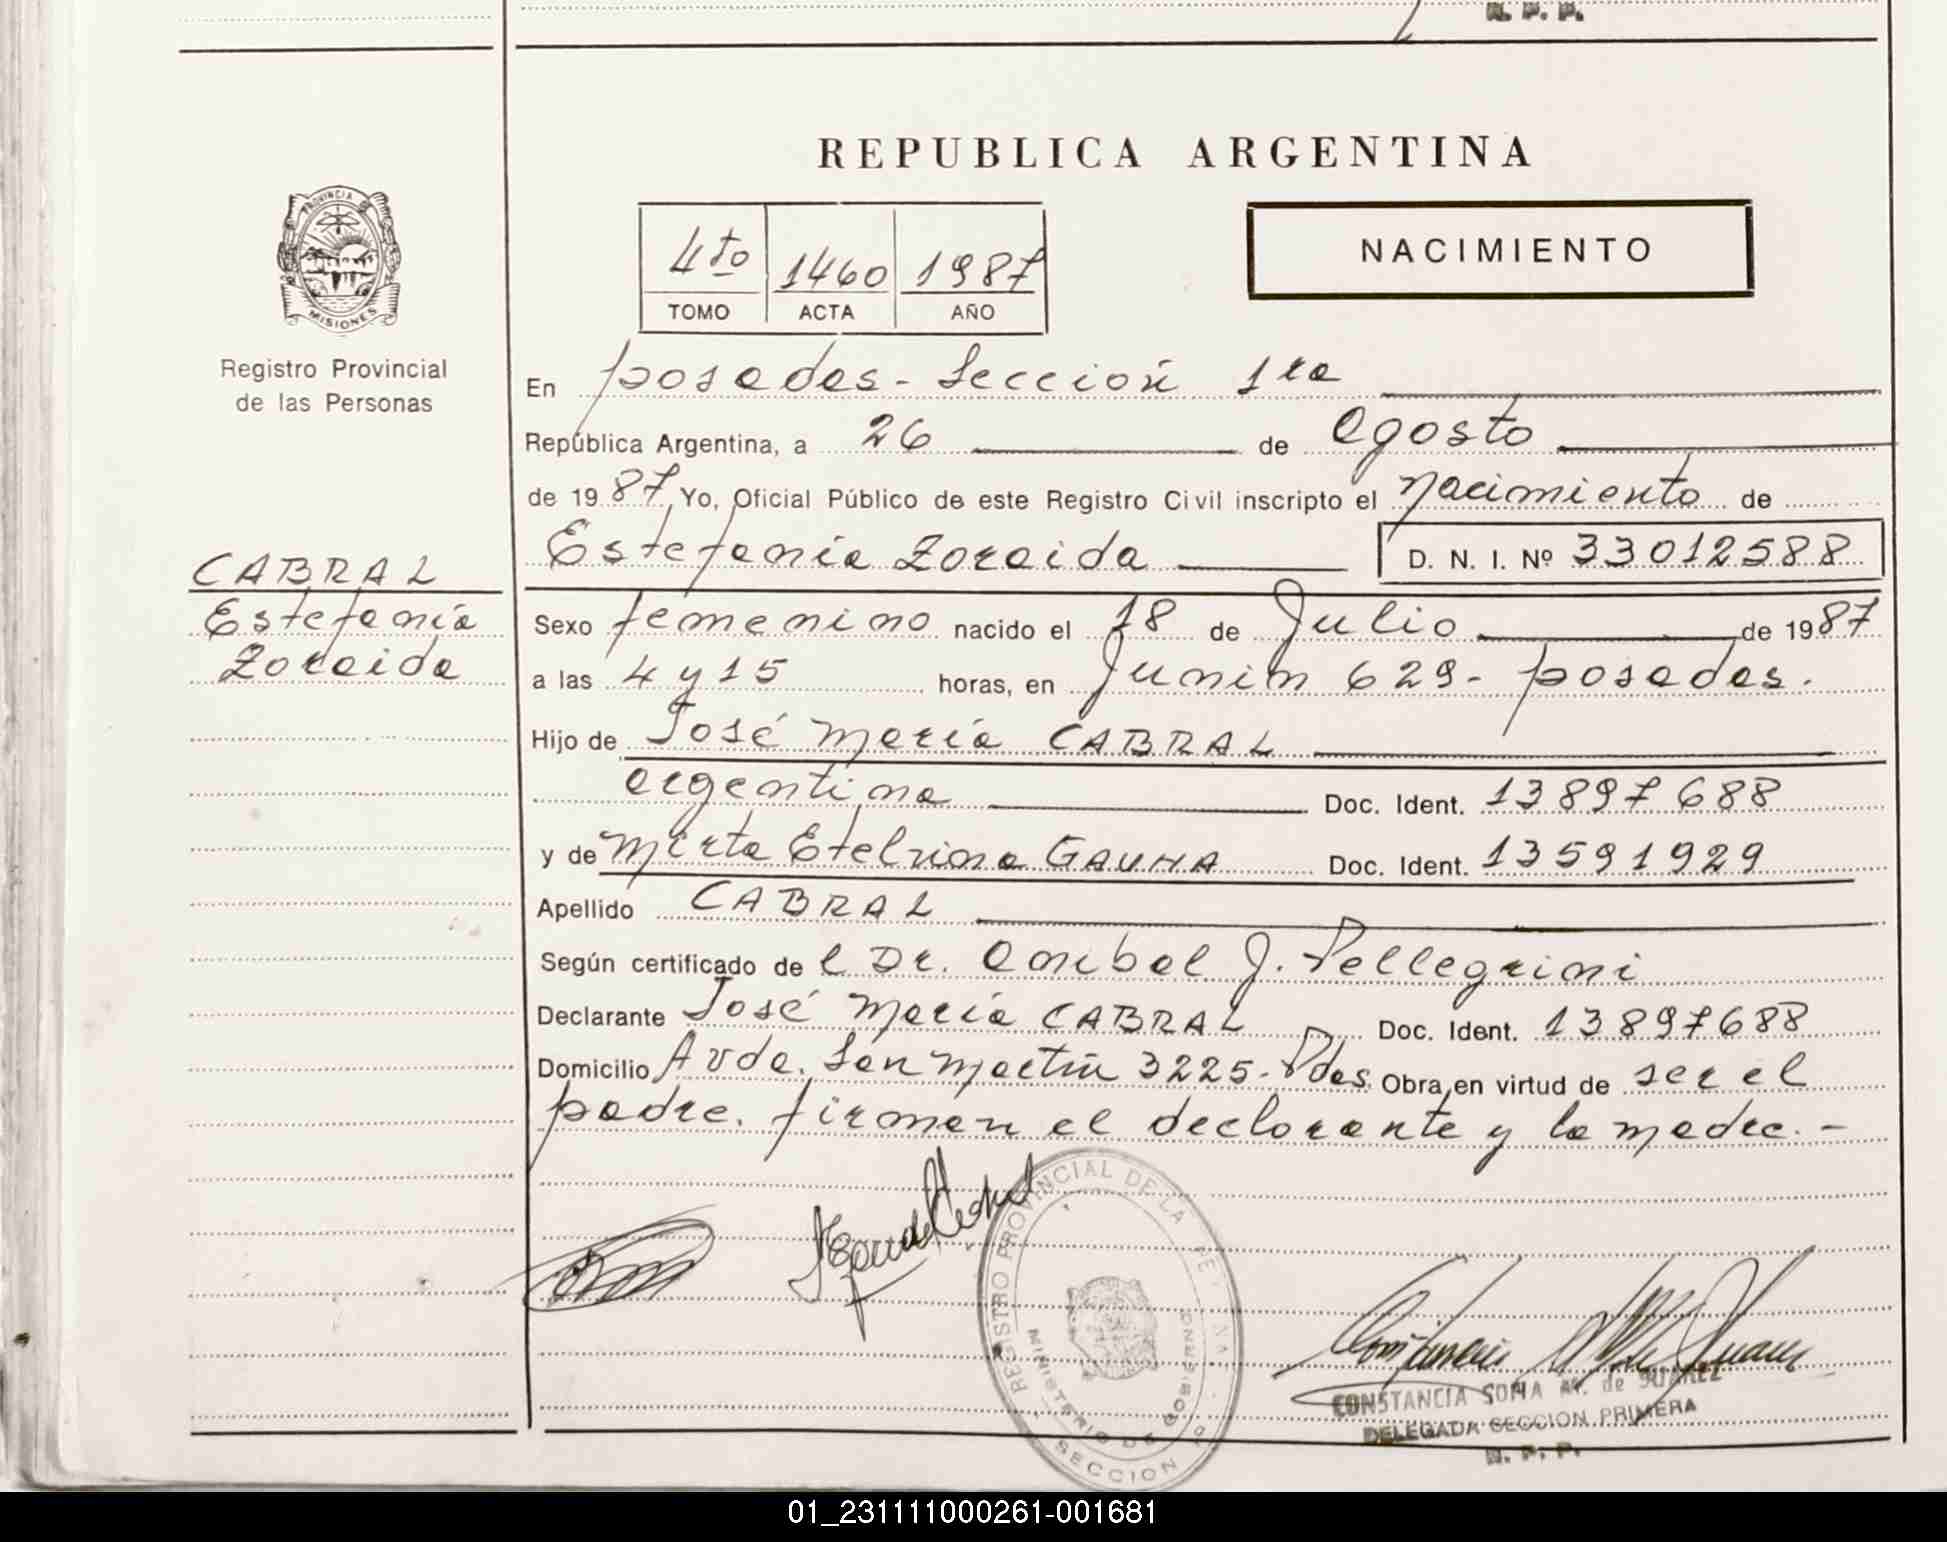 R. P. P.
REPUBLICA ARGENTINA
PROVINCIA DE
MISIONES
Registro Provincial
de las Personas
4to 1460 1987
TOMO ACTA AÑO
NACIMIENTO
En posadas - Sección 1ra
República Argentina, a 26 de agosto
de 1987, Yo, Oficial Público de este Registro Civil inscripto el nacimiento de
Estefanía Zoraida D. N. I. Nº 33012588
CABRAL
Estefanía
Zoraida
Sexo femenino nacido el 18 de Julio de 1987
a las 4 y 15 horas, en Junín 629 - posadas.
Hijo de José María CABRAL
argentina Doc. Ident. 13897688
y de Mirta Etelvina GAUNA Doc. Ident. 13591929
Apellido CABRAL
Según certificado del Dr. Anibal J. Pellegrini
Declarante José María CABRAL Doc. Ident. 13897688
Domicilio Avda. San Martín 3225 - Pdas. Obra en virtud de ser el
padre. firman el declarante y la madre. -
REGISTRO PROVINCIAL DE LA
MINISTERIO DE GOBIERNO
SECCION
CONSTANCIA SOFIA M. de SUAREZ
DELEGADA SECCION PRIMERA
R. P. P.
01_231111000261-001681